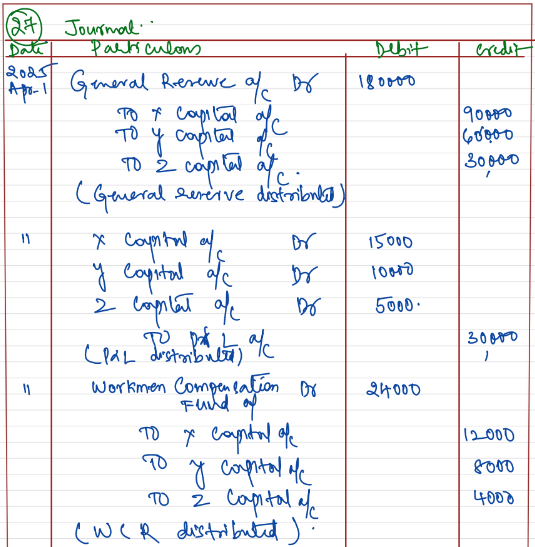 27 Journal
Date Particulars Debit Credit
2025
Apr-1 General Reserve a/c Dr 180000
To X Capital a/c 90000
To Y Capital a/c 60000
To Z Capital a/c. 30000
(General reserve distributed)
" X Capital a/c Dr 15000
Y Capital a/c Dr 10000
Z Capital a/c Dr 5000.
To P&L a/c 30000
(P&L distributed)
" Workmen Compensation Dr 24000
Fund a/c
To X Capital a/c 12000
To Y Capital a/c 8000
To Z Capital a/c 4000
(WCR distributed).